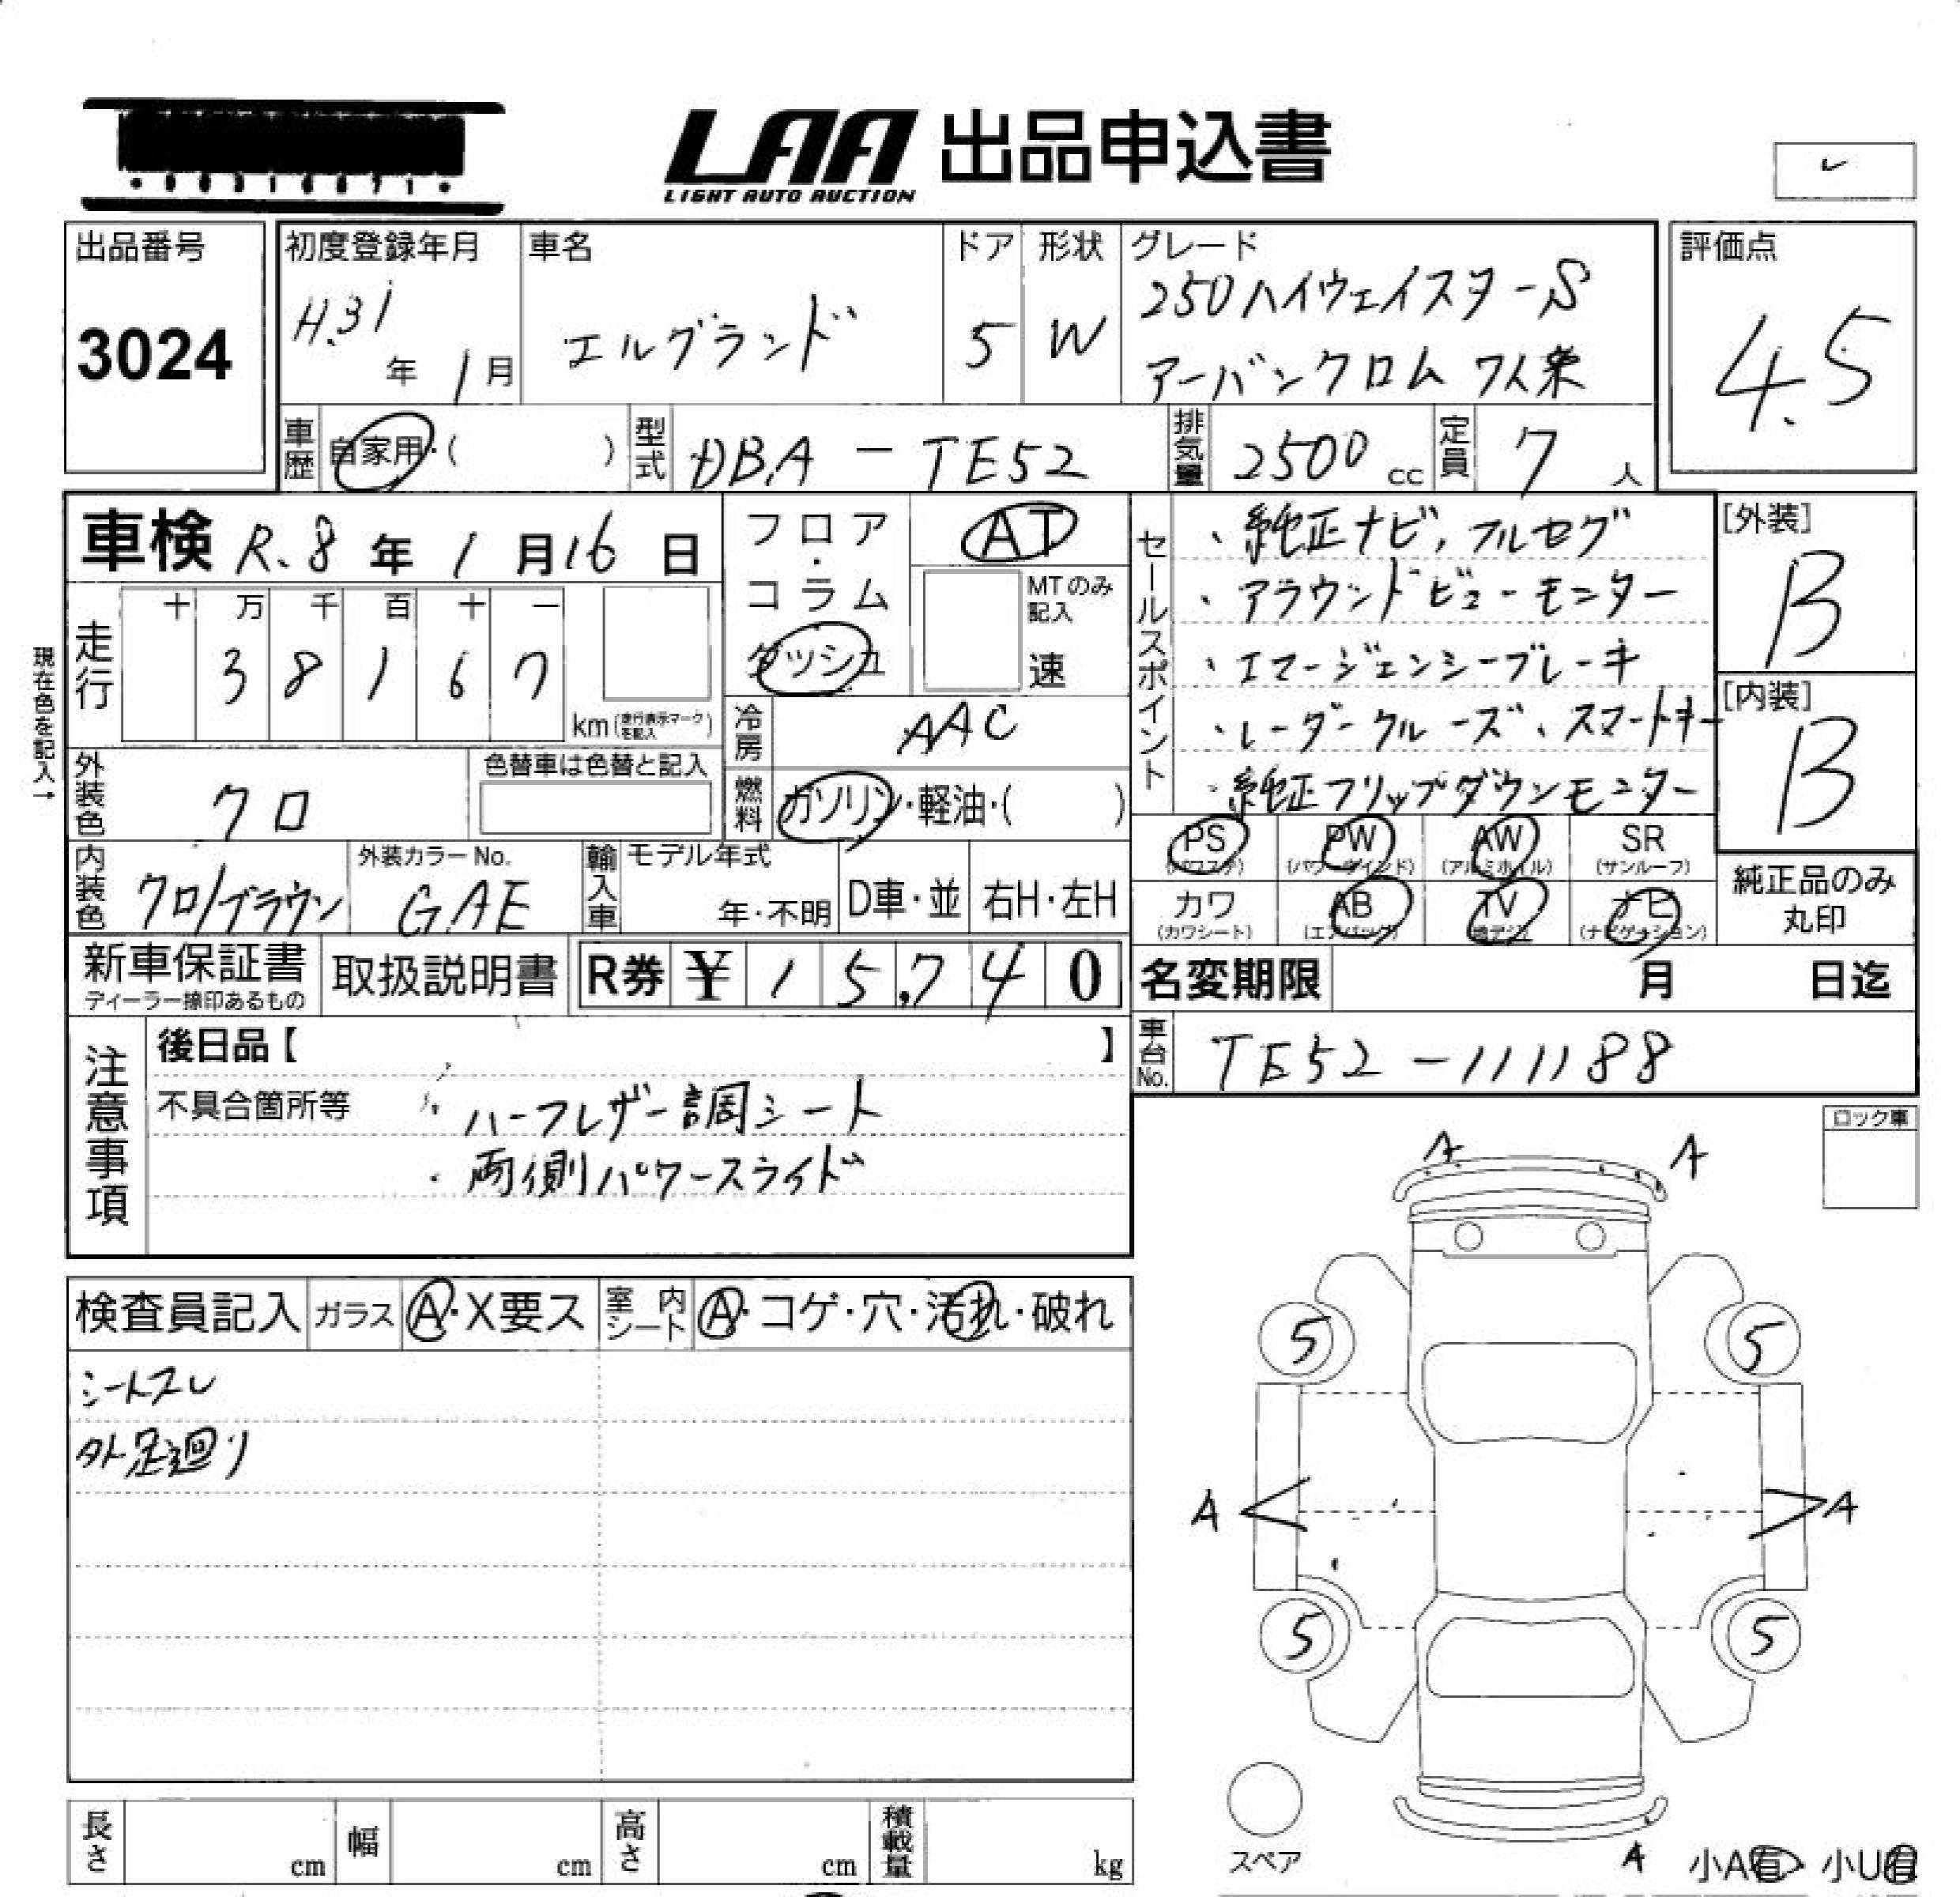 LAA 出品申込書
LIGHT AUTO AUCTION
出品番号
3024
初度登録年月
H.31年 1月
車名
エルグランド
ドア
5
形状
W
グレード
250ハイウェイスターS
アーバンクロム 7人乗
評価点
4.5
車歴 自家用・( )
型式 DBA-TE52
排気量 2500 cc
定員 7 人
車検 R.8年 1月16日
フロア・コラム ダッシュ
AT
MTのみ記入
速
走行
十 万 千 百 十 一
3 8 1 6 7
km(走行表示マークを記入)
現在色を記入→
冷房 AAC
外装色 クロ
色替車は色替と記入
燃料 ガソリン・軽油・( )
内装色 クロ/ブラウン
外装カラーNo.
GAE
輸入車 モデル年式
年・不明 D車・並 右H・左H
セールスポイント
・純正ナビ,フルセグ
・アラウンドビューモニター
・エマージェンシーブレーキ
・レーダークルーズ、スマートキー
・純正フリップダウンモニター
[外装]
B
[内装]
B
PS (パワステ) PW (パワーウインド) AW (アルミホイル) SR (サンルーフ)
カワ (カワシート) AB (エアバック) TV (地デジ) ナビ (ナビゲーション)
純正品のみ
丸印
新車保証書
ディーラー捺印あるもの
取扱説明書
R券 ¥ 15,740
名変期限 月 日迄
車台No. TE52-111188
注意事項
後日品【 】
不具合箇所等
・ハーフレザー調シート
・両側パワースライド
ロック車
検査員記入 ガラス A・X要ス 室内シート A・コゲ・穴・汚れ・破れ
シートスレ
外足廻り
A A
5 5
A A
5 5
スペア
A
小A有 小U有
長さ cm 幅 cm 高さ cm 積載量 kg